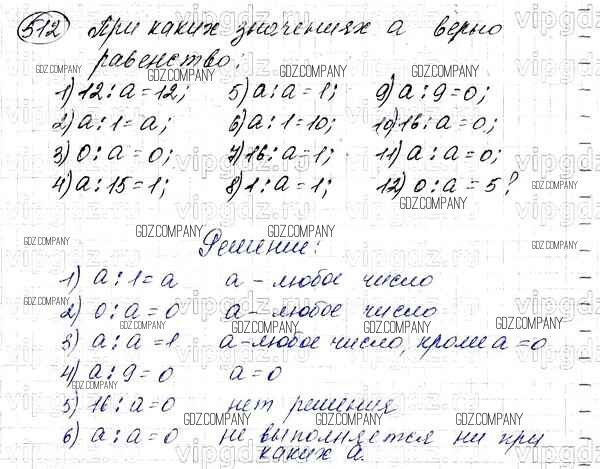 512 При каких значениях а верно
равенство:
1) 12 : а = 12; 5) а : а = 1; 9) а : 9 = 0;
2) а : 1 = а; 6) а : 1 = 10; 10) 16 : а = 0;
3) 0 : а = 0; 7) 16 : а = 1; 11) а : а = 0;
4) а : 15 = 1; 8) 1 : а = 1; 12) 0 : а = 5?
Решение:
1) а : 1 = а а – любое число
2) 0 : а = 0 а – любое число
3) а : а = 1 а – любое число, кроме а = 0
4) а : 9 = 0 а = 0
5) 16 : а = 0 нет решения
6) а : а = 0 не выполняется ни при
каких а.